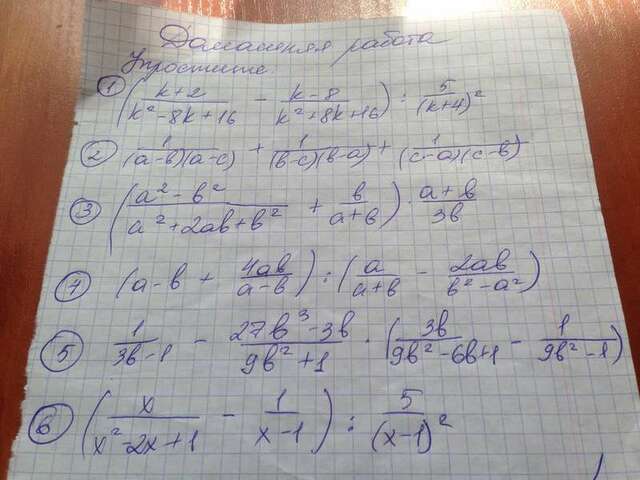 Домашняя работа
Упростите:
1 ((k+2)/(k²-8k+16) - (k-8)/(k²+8k+16)) : 5/(k+4)²
2 1/((a-b)(a-c)) + 1/((b-c)(b-a)) + 1/((c-a)(c-b))
3 ((a²-b²)/(a²+2ab+b²) + b/(a+b)) · (a+b)/3b
4 (a-b + 4ab/(a-b)) : (a/(a+b) - 2ab/(b²-a²))
5 1/(3b-1) - (27b³-3b)/(9b²+1) · (3b/(9b²-6b+1) - 1/(9b²-1))
6 (x/(x²-2x+1) - 1/(x-1)) : 5/(x-1)²